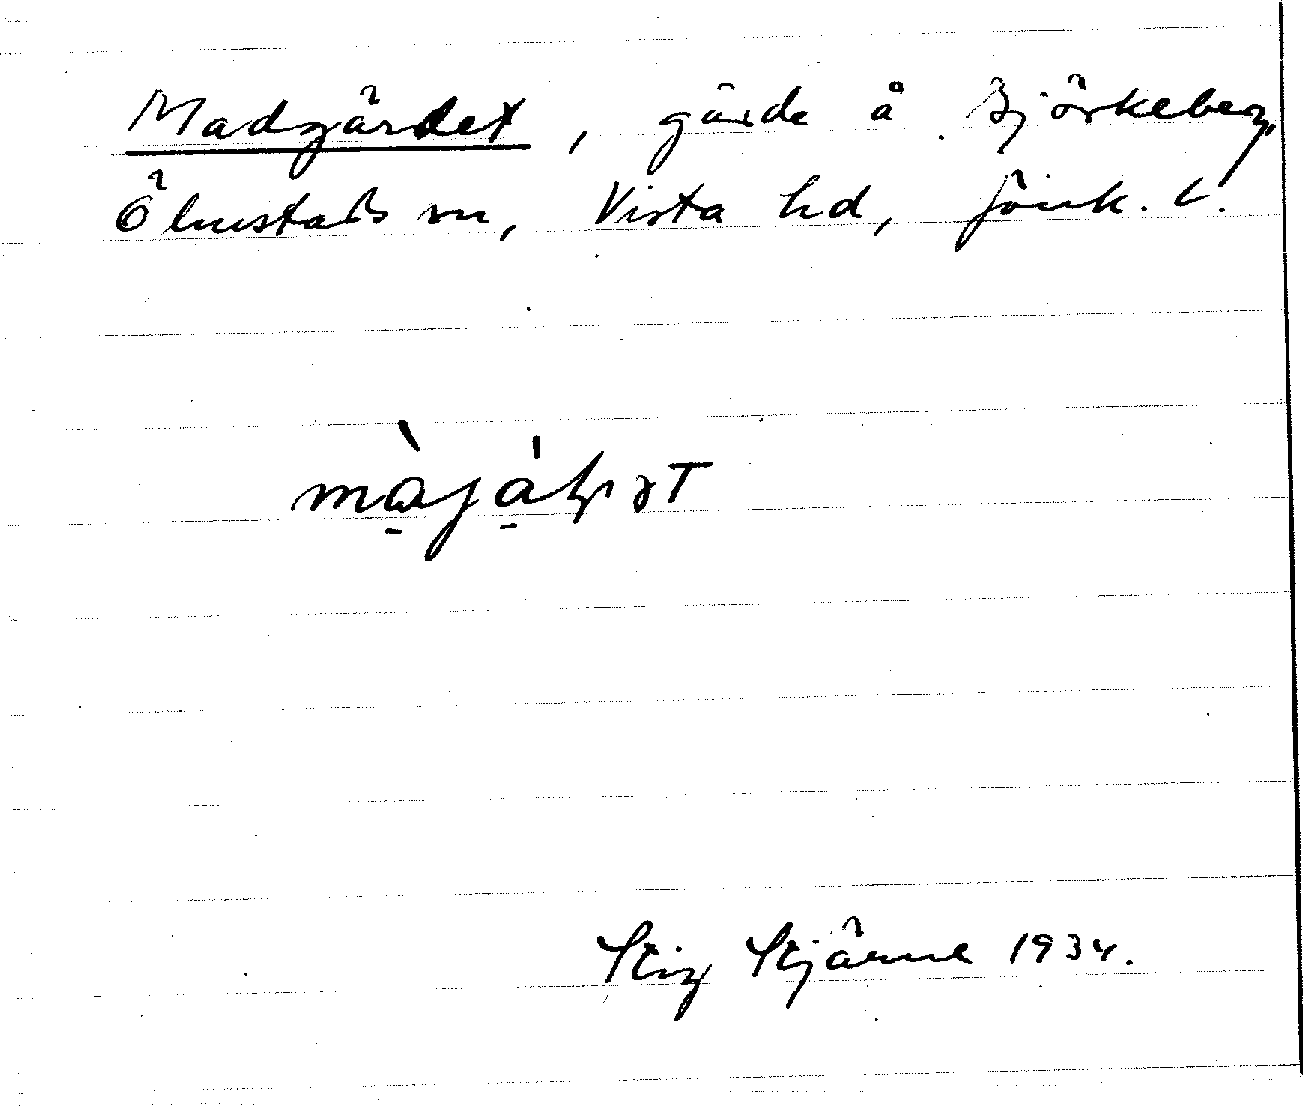 Madgärdet, gärde å Björkeberg,
Ölmstads sn, Vista hd, Jönk. l.
Stig Stjärne 1934.